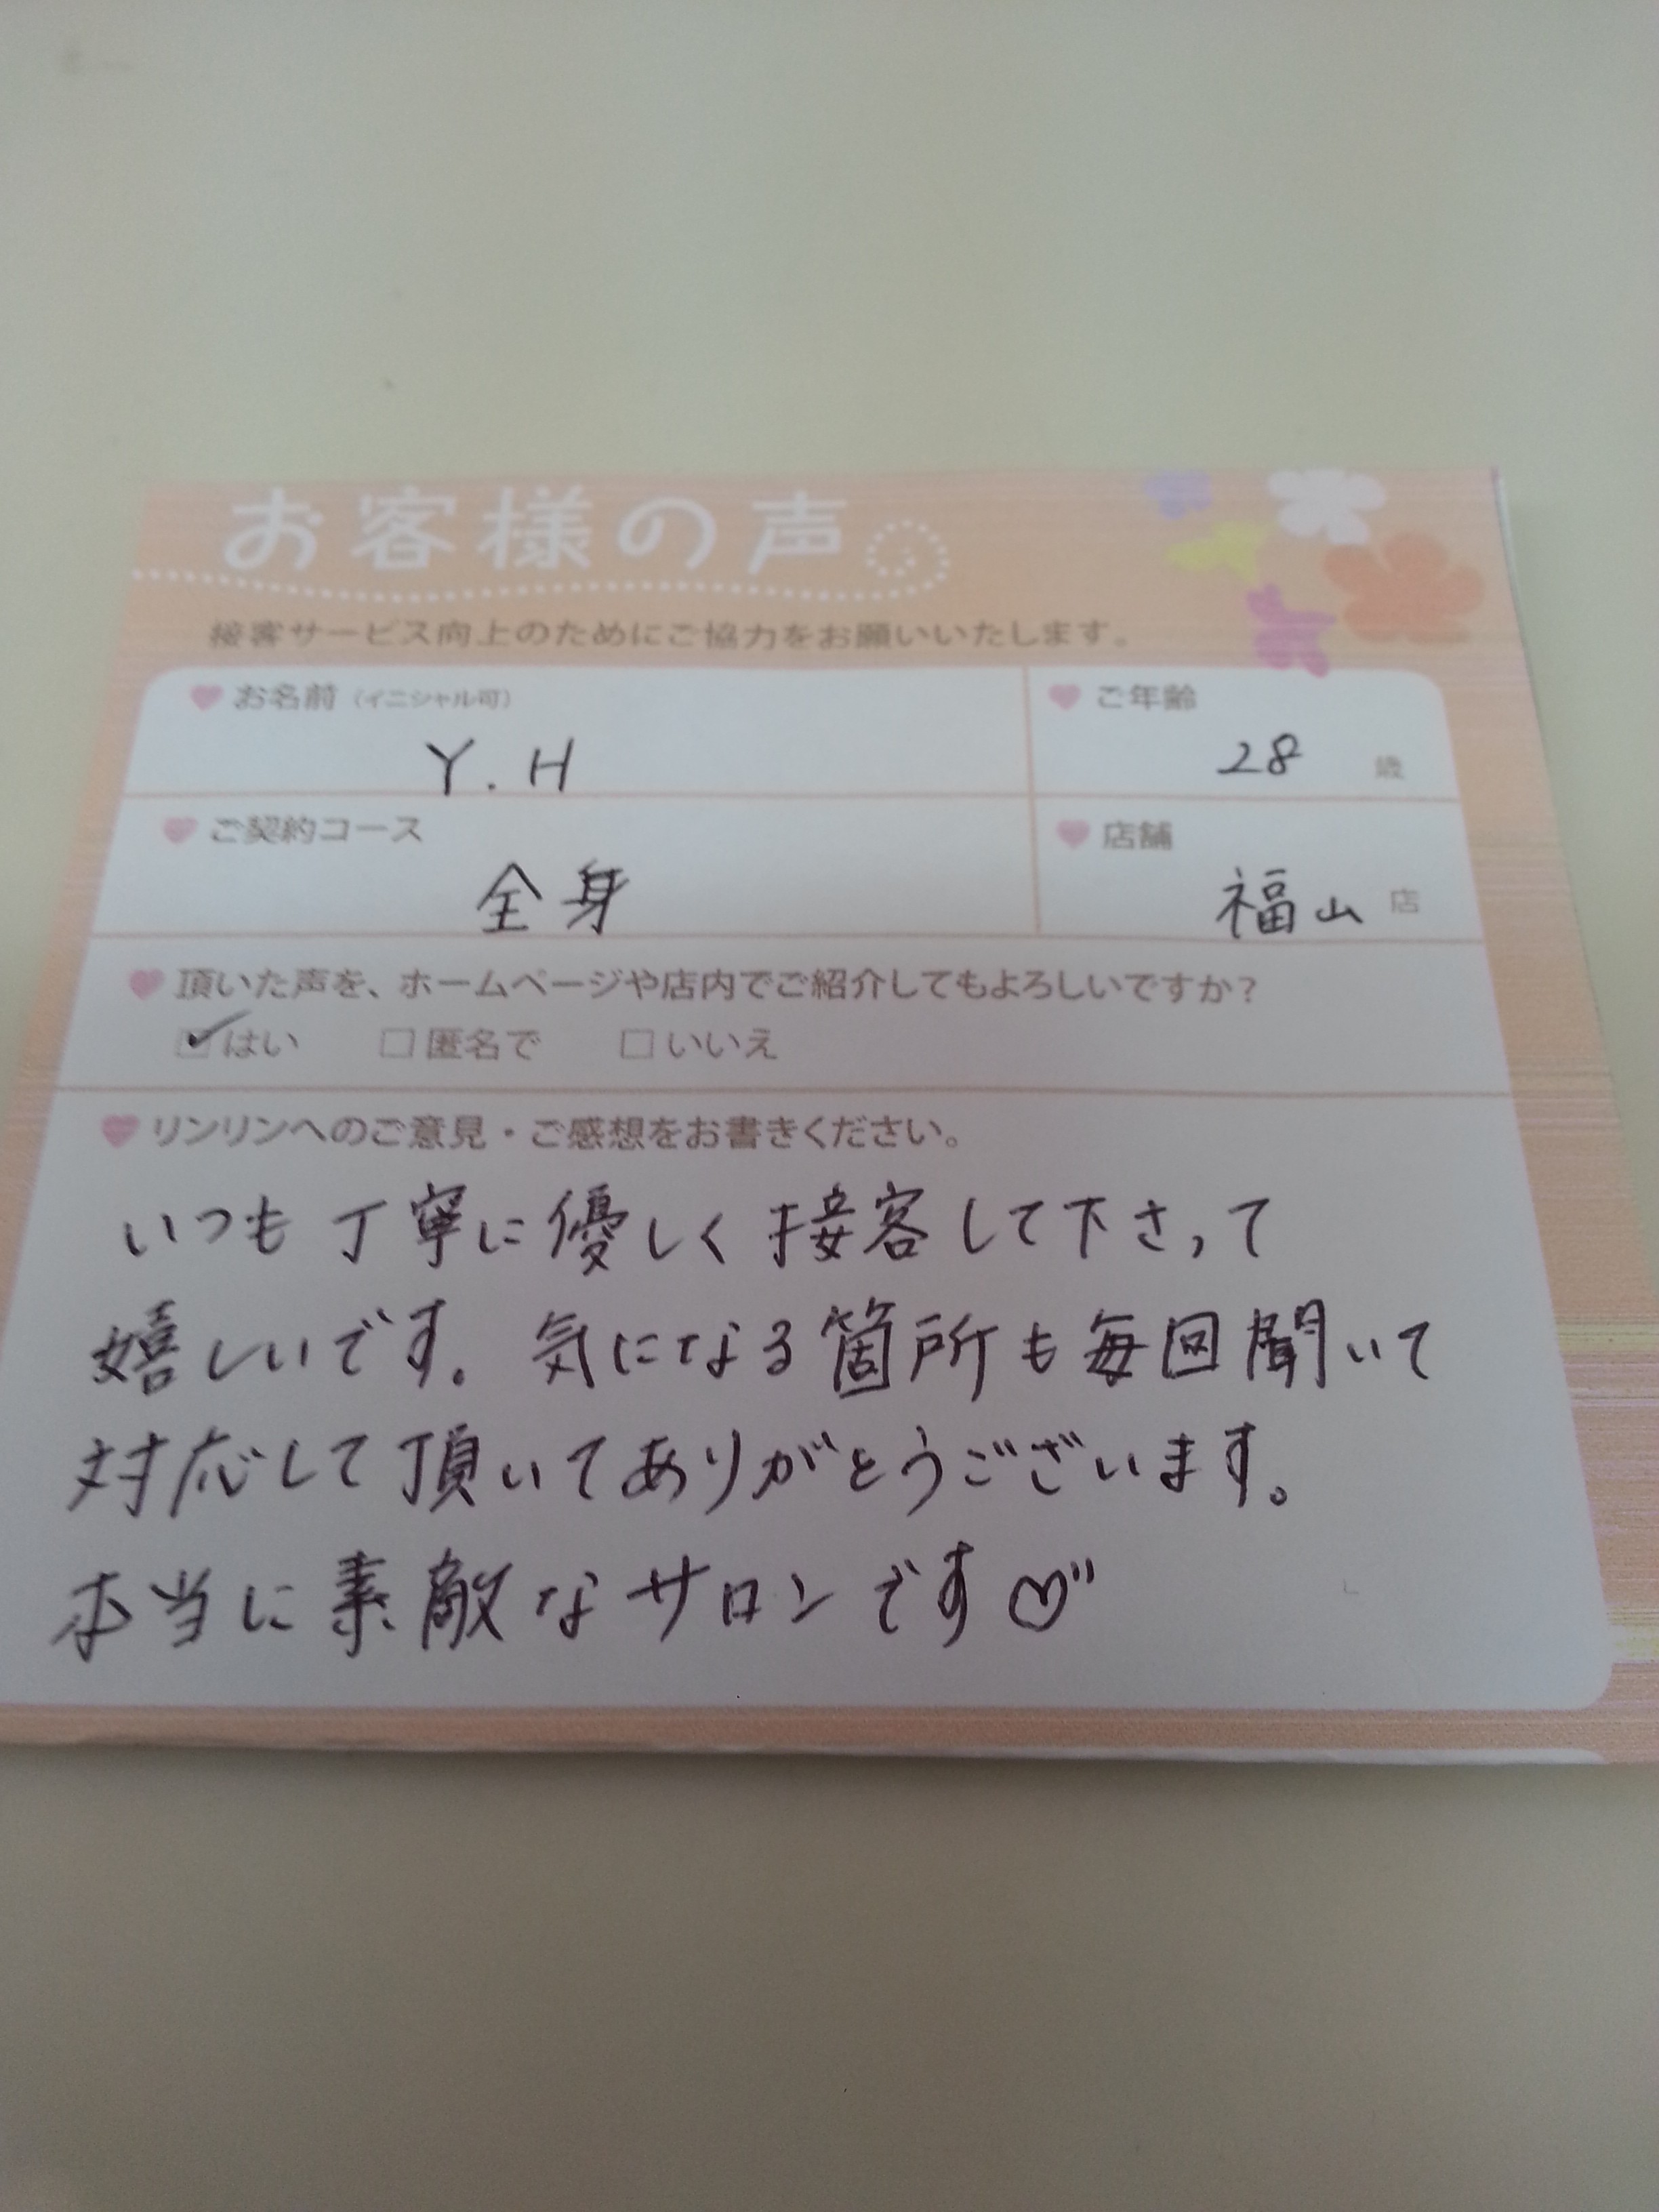 お客様の声
接客サービス向上のためにご協力をお願いいたします。
お名前（イニシャル可） ご年齢
Y.H 28 歳
ご契約コース 店舗
全身 福山 店
頂いた声を、ホームページや店内でご紹介してもよろしいですか？
はい 匿名で いいえ
リンリンへのご意見・ご感想をお書きください。
いつも丁寧に優しく接客して下さって
嬉しいです。気になる箇所も毎回聞いて
対応して頂いてありがとうございます。
本当に素敵なサロンです♡"